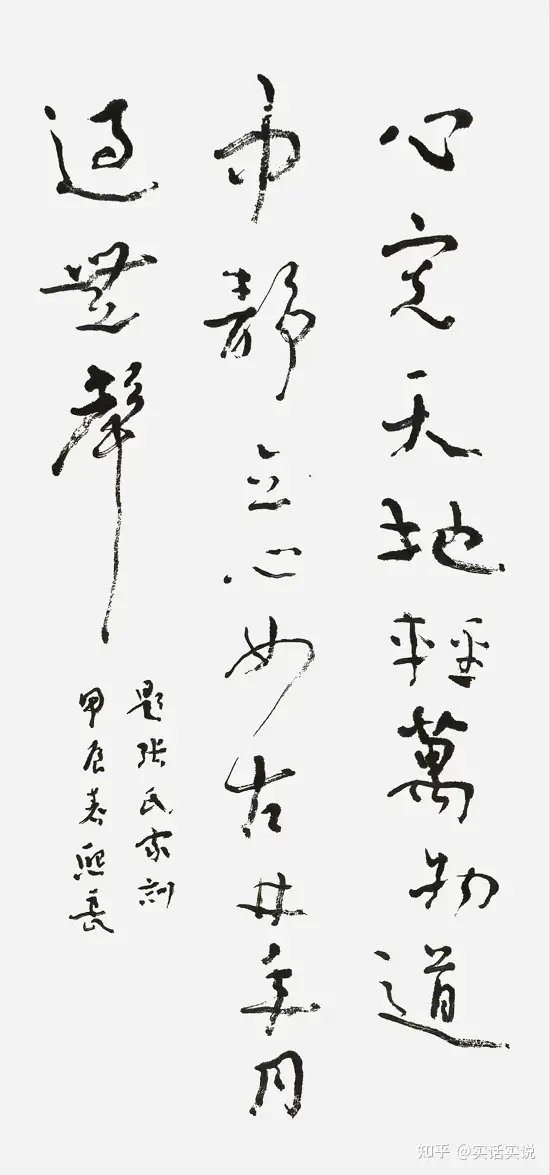 心寬天地輕萬物道
中靜立心如古井年月
過無聲
題張氏家訓
甲辰春熙長
知乎 @实话实说